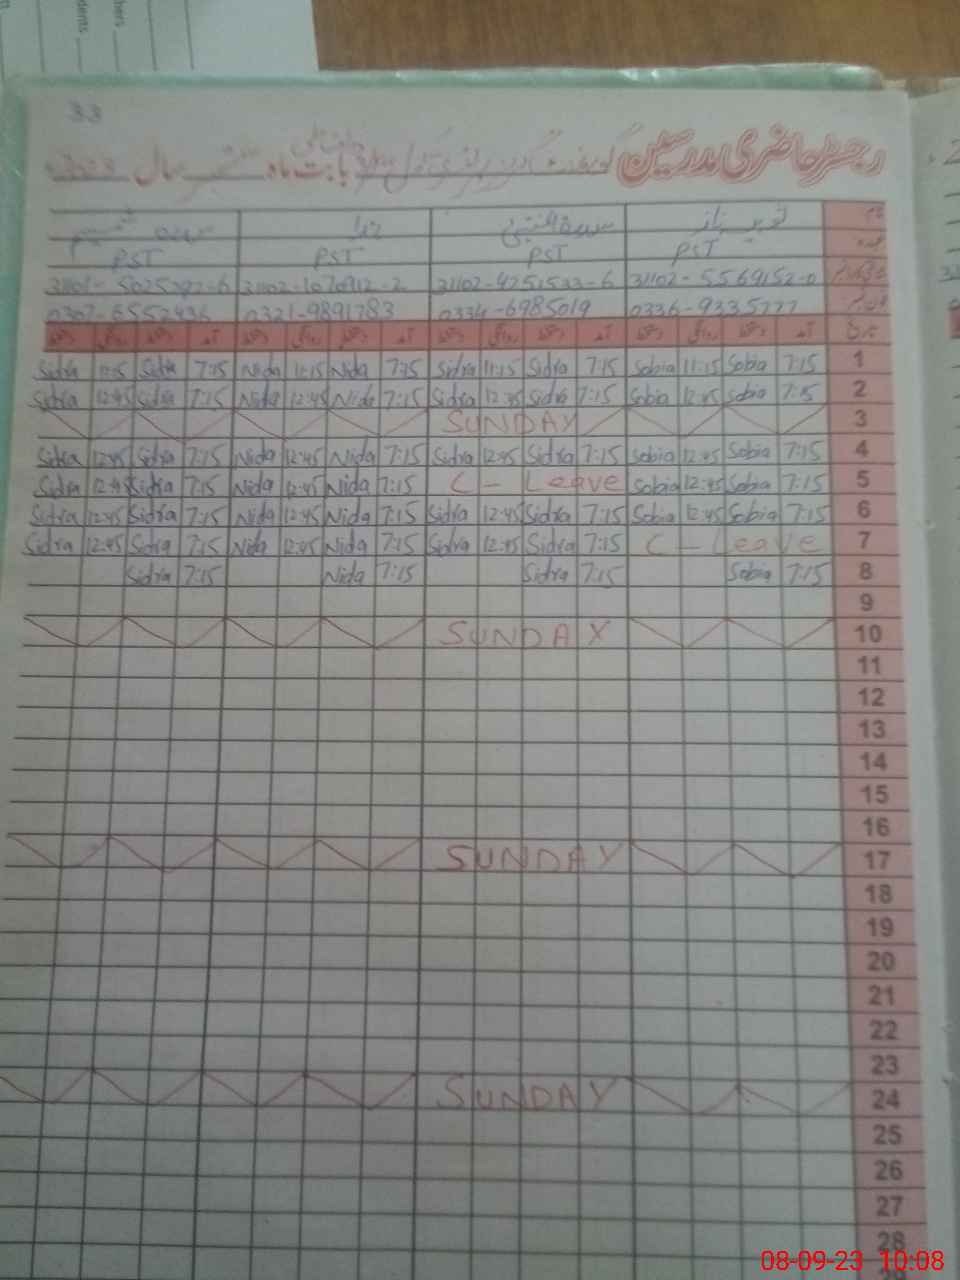 hers
dents
33
رجسٹر حاضری مدرسین گورنمنٹ گرلز پرائمری سکول بابت ماہ ستمبر سال
نام
عہدہ PST PST PST PST
31102-5569152-0 31102-4251533-6 31102-1070912-2
0336-9335777 0334-6985019 0321-9891783 0307-6552436
تاریخ آمد دستخط روانگی دستخط آمد دستخط روانگی دستخط آمد دستخط روانگی دستخط آمد دستخط روانگی دستخط
Sidra 11:15 Sidra 7:15 Nida 11:15 Nida 7:15 Sidra 11:15 Sidra 7:15 Sobia 11:15 Sobia 7:15 1
Sidra 12:45 Sidra 7:15 Nida 12:45 Nida 7:15 Sidra 12:45 Sidra 7:15 Sobia 12:45 Sobia 7:15 2
SUNDAY 3
Sidra 12:45 Sidra 7:15 Nida 12:45 Nida 7:15 Sidra 12:45 Sidra 7:15 Sobia 12:45 Sobia 7:15 4
Sidra 12:45 Sidra 7:15 Nida 12:45 Nida 7:15 C - Leave Sobia 12:45 Sobia 7:15 5
Sidra 12:45 Sidra 7:15 Nida 12:45 Nida 7:15 Sidra 12:45 Sidra 7:15 Sobia 12:45 Sobia 7:15 6
Sidra 12:45 Sidra 7:15 Nida 12:45 Nida 7:15 Sidra 12:45 Sidra 7:15 C - Leave 7
Sidra 7:15 Nida 7:15 Sidra 7:15 Sobia 7:15 8
9
SUNDAY 10
11
12
13
14
15
16
SUNDAY 17
18
19
20
21
22
23
SUNDAY 24
25
26
27
28
08-09-23 10:08